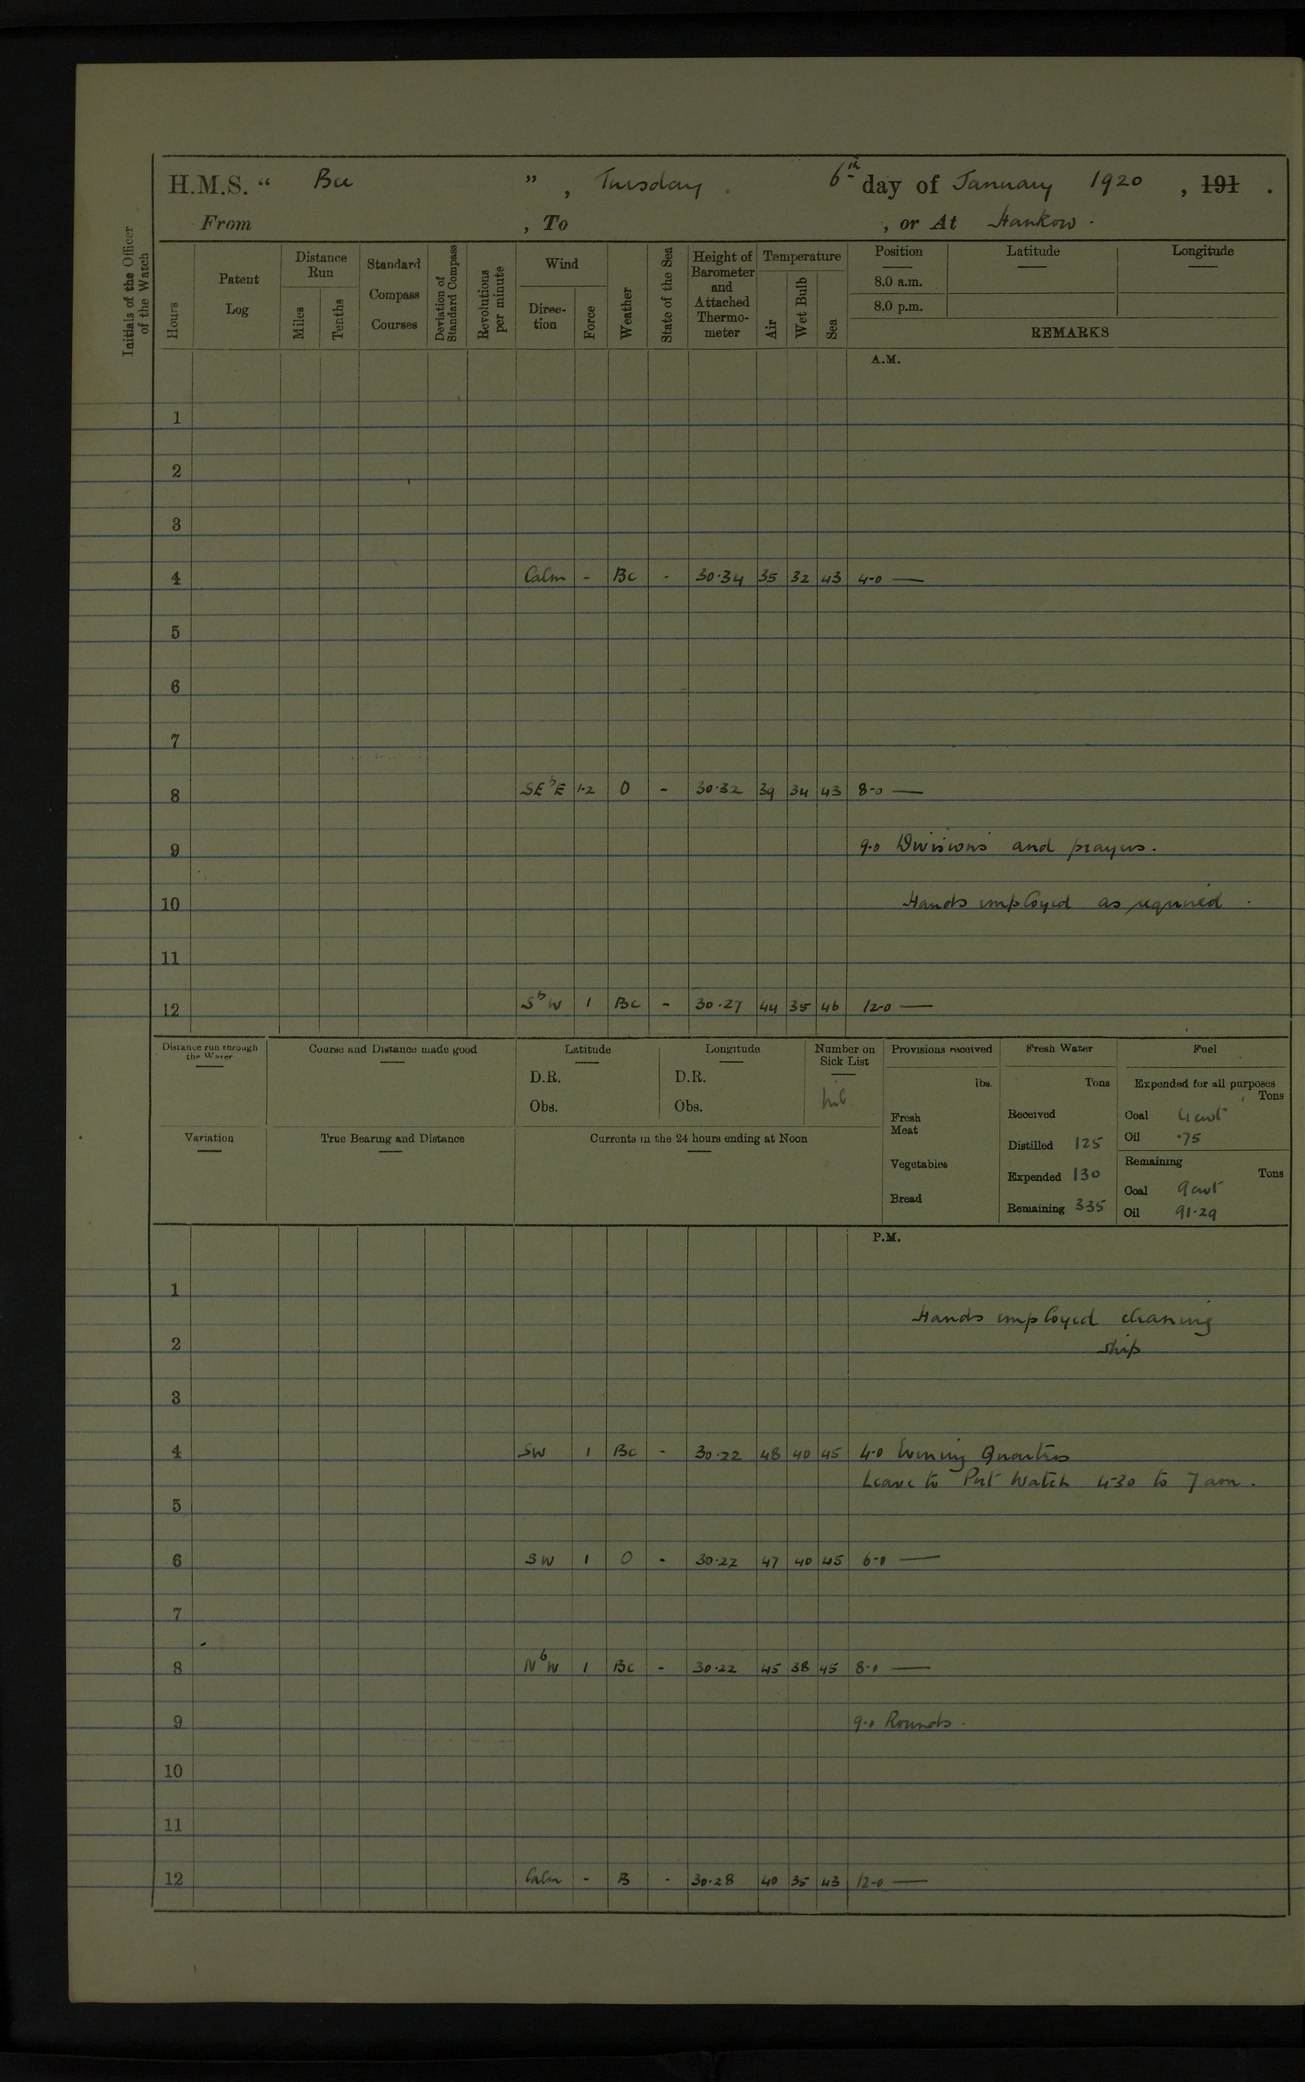 H.M.S. “ Bee ” , Tuesday . 6th day of January 1920 , 191 .
From , To , or At Hankow .
Initials of the Officer of the Watch
Hours
Patent Log
Distance Run
Miles
Tenths
Standard Compass Courses
Deviation of Standard Compass
Revolutions per minute
Wind
Direc-tion
Force
Weather
State of the Sea
Height of Barometer and Attached Thermo-meter
Temperature
Air
Wet Bulb
Sea
Position
8.0 a.m.
8.0 p.m.
Latitude
Longitude
REMARKS
A.M.
1
2
3
4 Calm - Bc - 30.34 35 32 43 4-0 —
5
6
7
8 SEbE 1-2 O - 30.32 39 34 43 8-0 —
9 9-0 Divisions and prayers.
10 Hands employed as required .
11
12 SbW 1 Bc - 30.27 44 35 46 12-0 —
Distance run through the Water
Course and Distance made good
Latitude
D.R.
Obs.
Longitude
D.R.
Obs.
Number on Sick List
nil
Variation
True Bearing and Distance
Currents in the 24 hours ending at Noon
Provisions received
lbs.
Fresh Meat
Vegetables
Bread
Fresh Water
Tons
Received
Distilled 125
Expended 130
Remaining 335
Fuel
Expended for all purposes
Tons
Coal 4 cwt
Oil .75
Remaining
Tons
Coal 9 cwt
Oil 91.29
P.M.
1
Hands employed cleaning
2 ship
3
4 SW 1 Bc - 30.22 48 40 45 4-0 Evening Quarters
Leave to Part Watch 4-30 to 7 am .
5
6 SW 1 O - 30.22 47 40 45 6-0 —
7
8 NbW 1 Bc - 30.22 45 38 45 8-0 —
9 9-0 Rounds .
10
11
12 Calm - B - 30.28 40 35 43 12-0 —